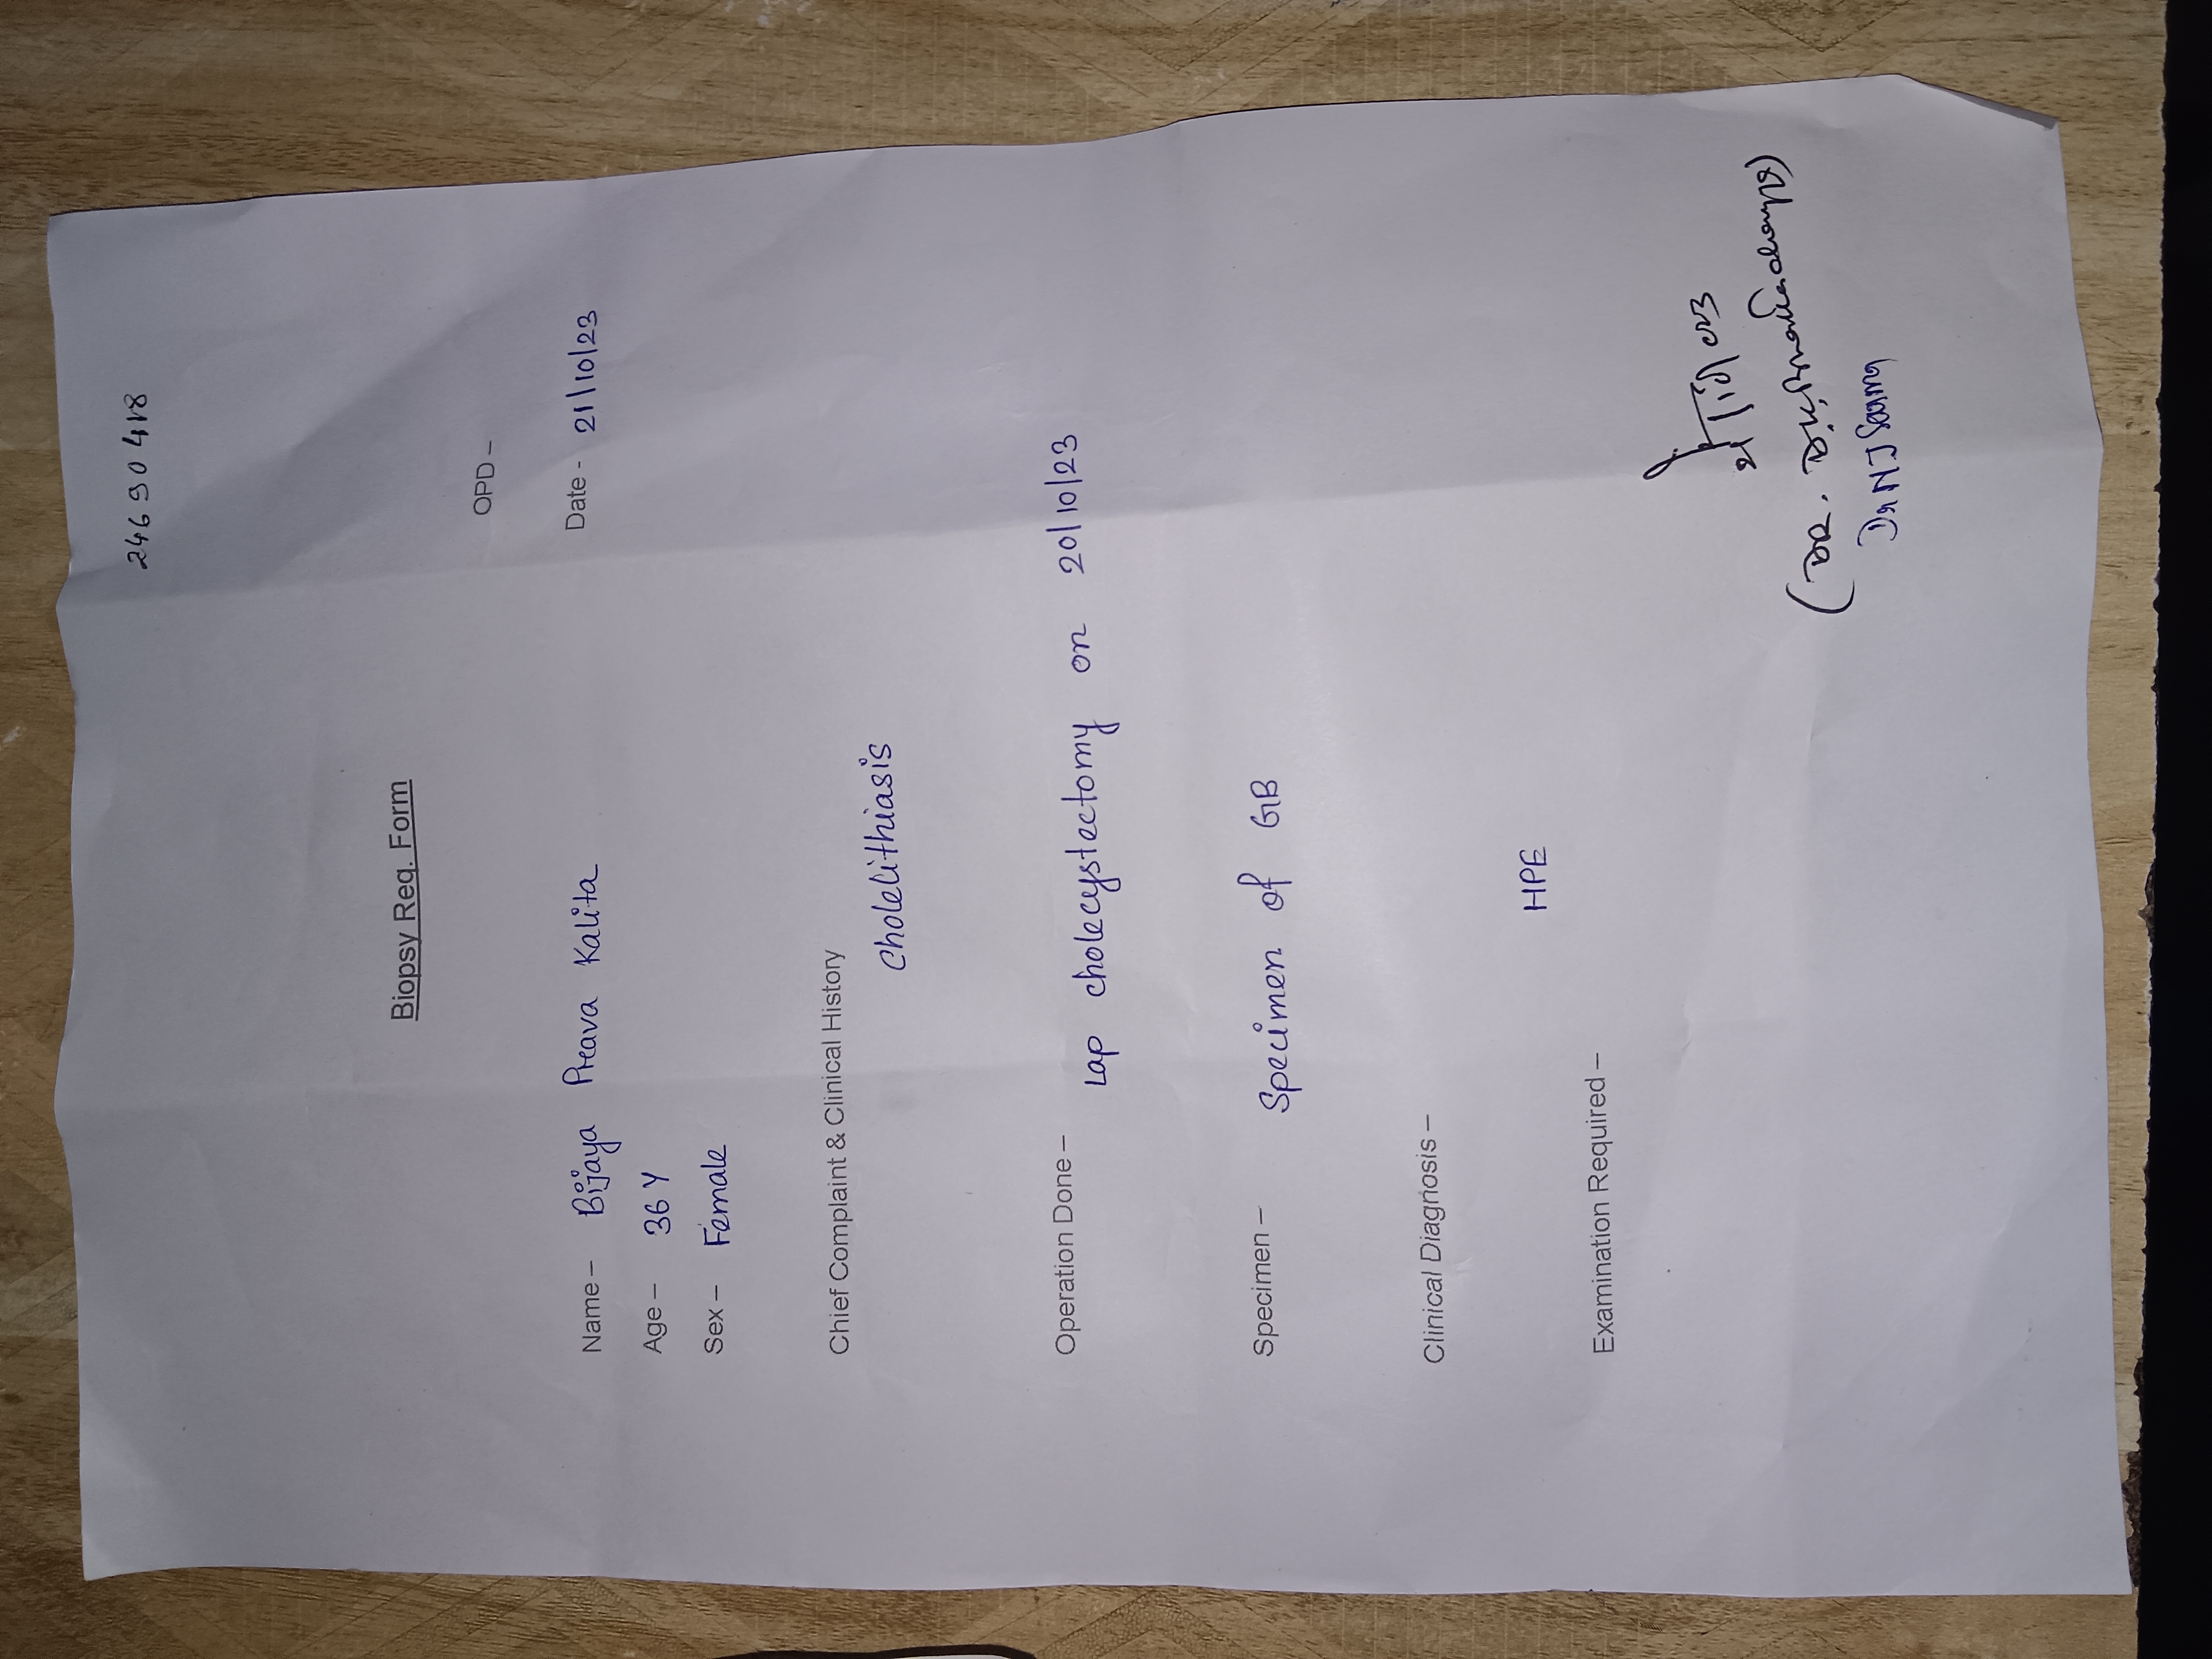 246530418
Biopsy Req. Form
OPD –
Name – Bijaya Prava Kalita Date - 21/10/23
Age – 36 Y
Sex – Female
Chief Complaint & Clinical History
Cholelithiasis
Operation Done –
Lap cholecystectomy on 20/10/23
Specimen –
Specimen of GB
Clinical Diagnosis –
HPE
Examination Required –
(DR. D.K.
Dr N J